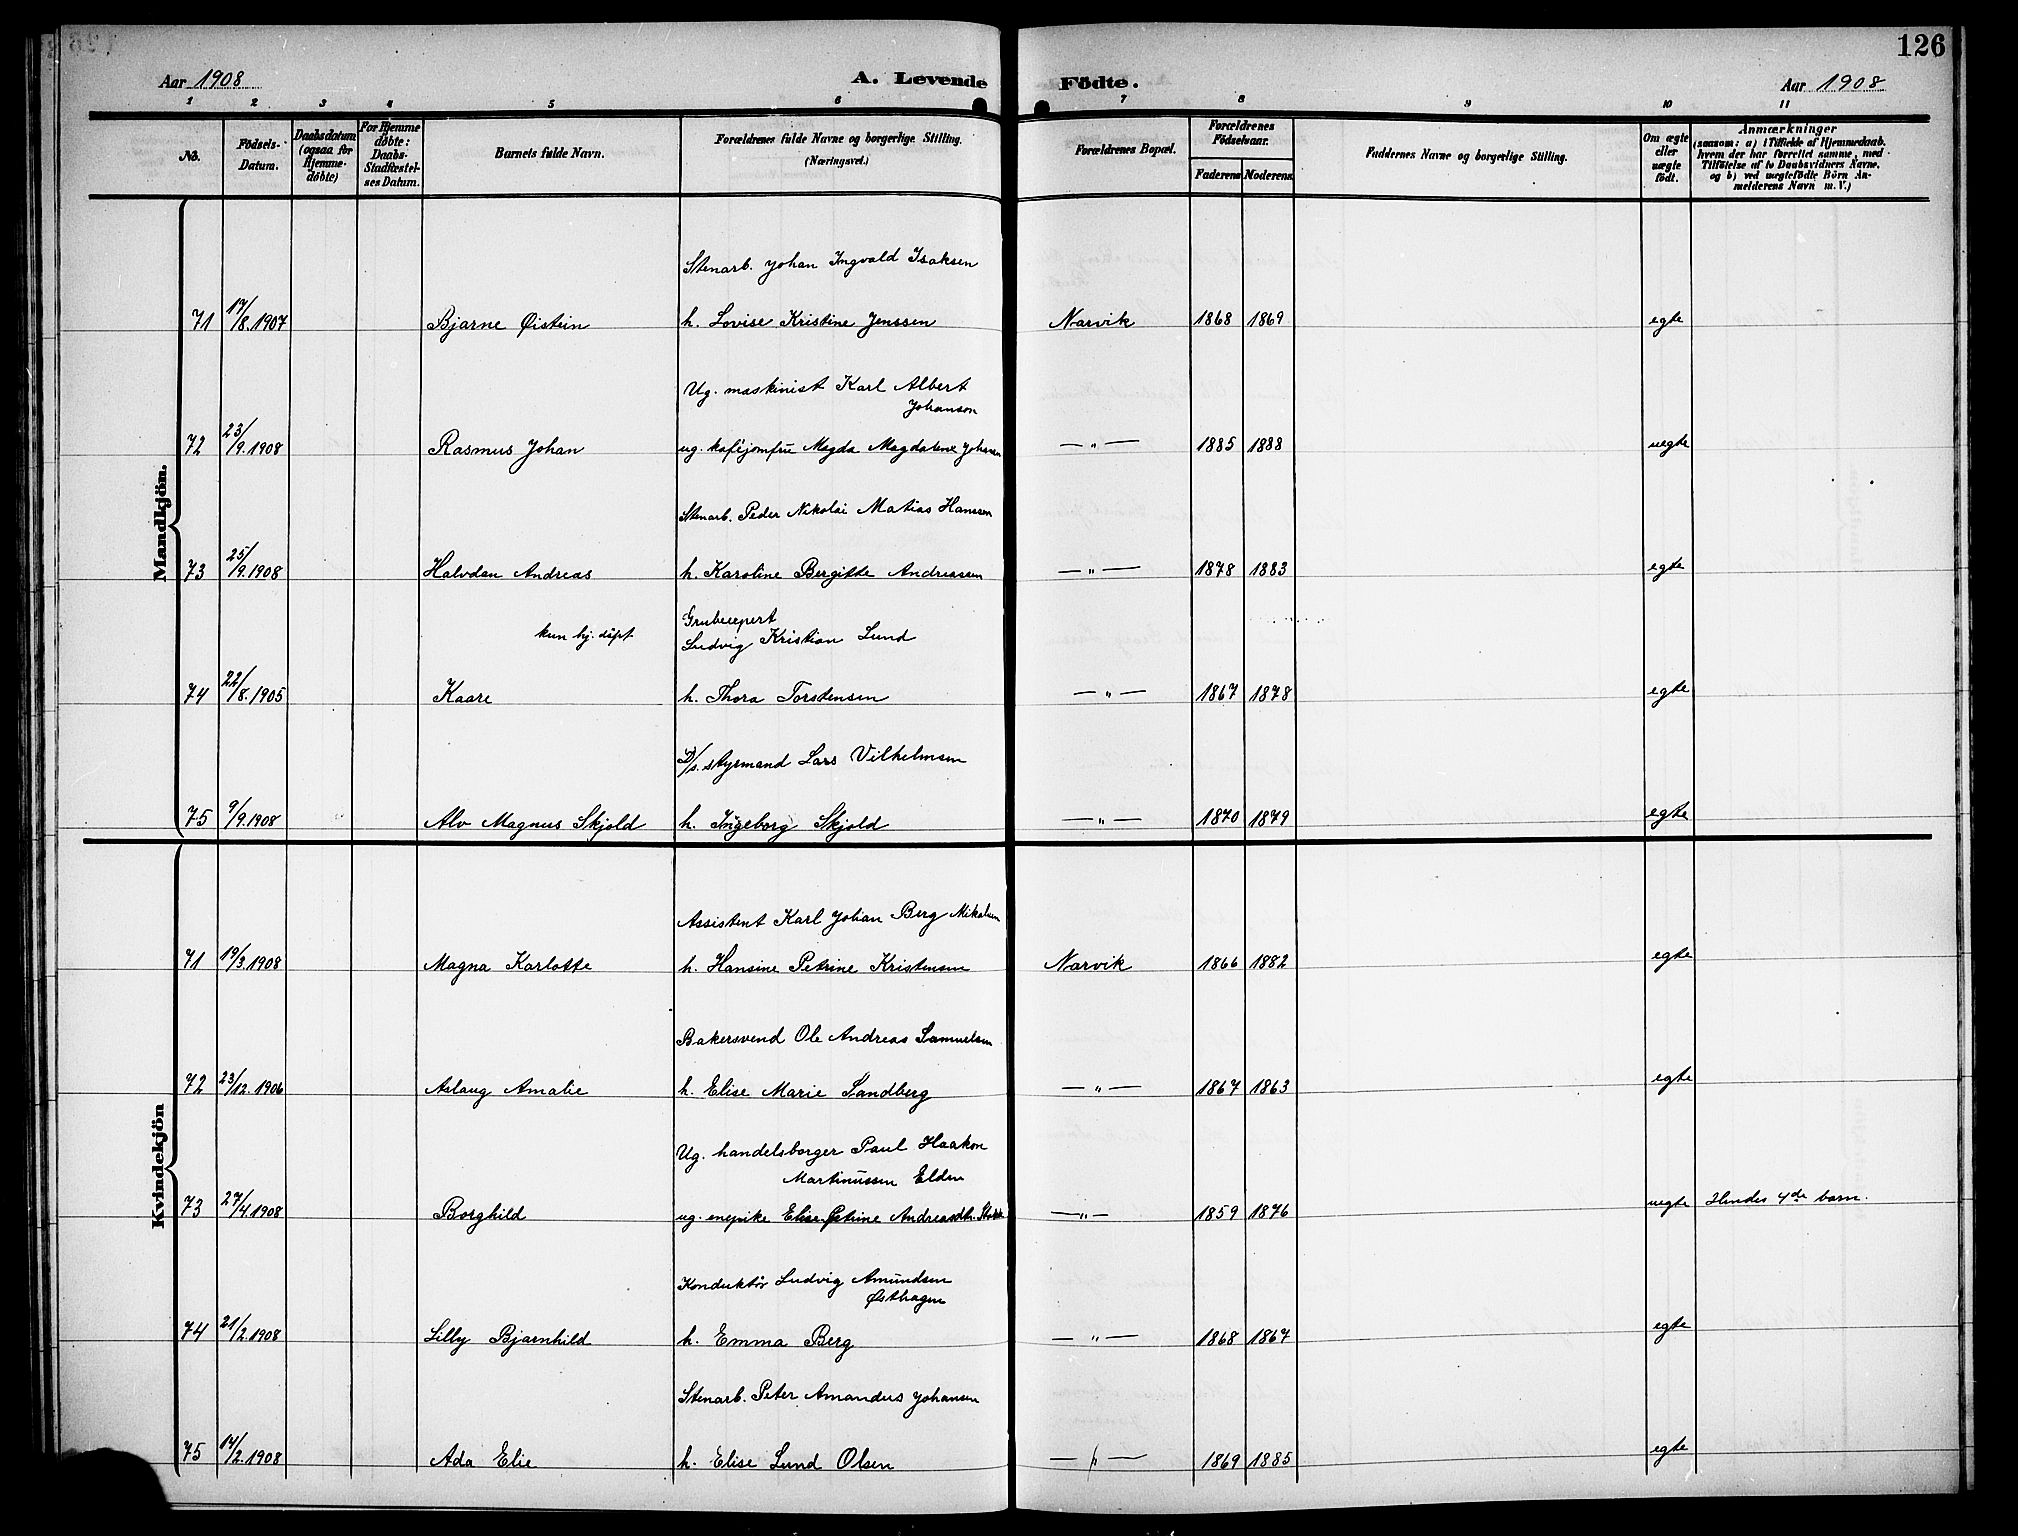 126
Aar 1908
A. Levende Födte.
Aar 1908
1 2 3 4 5 6 7 8 9 10 11
No.
Födsels-Datum.
Daabsdatum (ogsaa for Hjemme-döbte)
For Hjemme döbte: Daabs-Stadfæstel-ses Datum.
Barnets fulde Navn.
Forældrenes fulde Navne og borgerlige Stilling. (Næringsvei.)
Forældrenes Bopæl.
Forældrenes Födselsaar.
Faderens Moderens
Faddernes Navne og borgerlige Stilling.
Om ægte eller uægte födt.
Anmærkninger
(saasom: a) i Tilfælde af Hjemmedaab, hvem der har forrettet samme, med Tilföielse af to Daabsvidners Navne, og b) ved uægtefödte Börn An-melderens Navn m. V.)
Mandkjön.
Stenarb. Johan Ingvald Isaksen
71 17/8.1907 Bjarne Øistein h. Lovise Kristine Jenssen Narvik 1868 1869 egte
Ug. maskinist Karl Albert
Johanson
72 23/9.1908 Rasmus Johan ug. kaféjomfru Magda Magdalene Johansen —"— 1885 1888 uegte
Stenarb. Peder Nikolai Matias Hanssen
73 25/9.1908 Halvdan Andreas h. Karoline Bergitte Andreassen —"— 1878 1883 egte
kun hj. döpt
Ludvig Kristian Lund
74 22/8.1905 Kaare h. Thora Torstensen —"— 1867 1878 egte
D/s. styrmand Lars Vilhelmsen
75 9/9.1908 Alv Magnus Skjold h. Ingeborg Skjold —"— 1870 1879 egte
Kvindekjön
Assistent Karl Johan Berg Mikalsen
71 19/3.1908 Magna Karlotte h. Hansine Petrine Kristensen Narvik 1866 1882 egte
Bakersvend Ole Andreas Samuelsen
72 23/12.1906 Aslaug Amalie h. Elise Marie Sandberg —"— 1867 1863 egte
Ug. handelsborger Paul Haakon
Martinussen Elden
73 27/4.1908 Borghild ug. enepike Elise Petrine Andreasdtr. —"— 1859 1876 uegte Hendes 4de barn.
Konduktör Ludvig Amundsen
Østhagen
74 21/2.1908 Lilly Bjarnhild h. Emma Berg —"— 1868 1867 egte
Stenarb. Peter Amandus Johansen
75 14/2.1908 Ada Elie h. Elise Lund Olsen —"— 1869 1885 egte